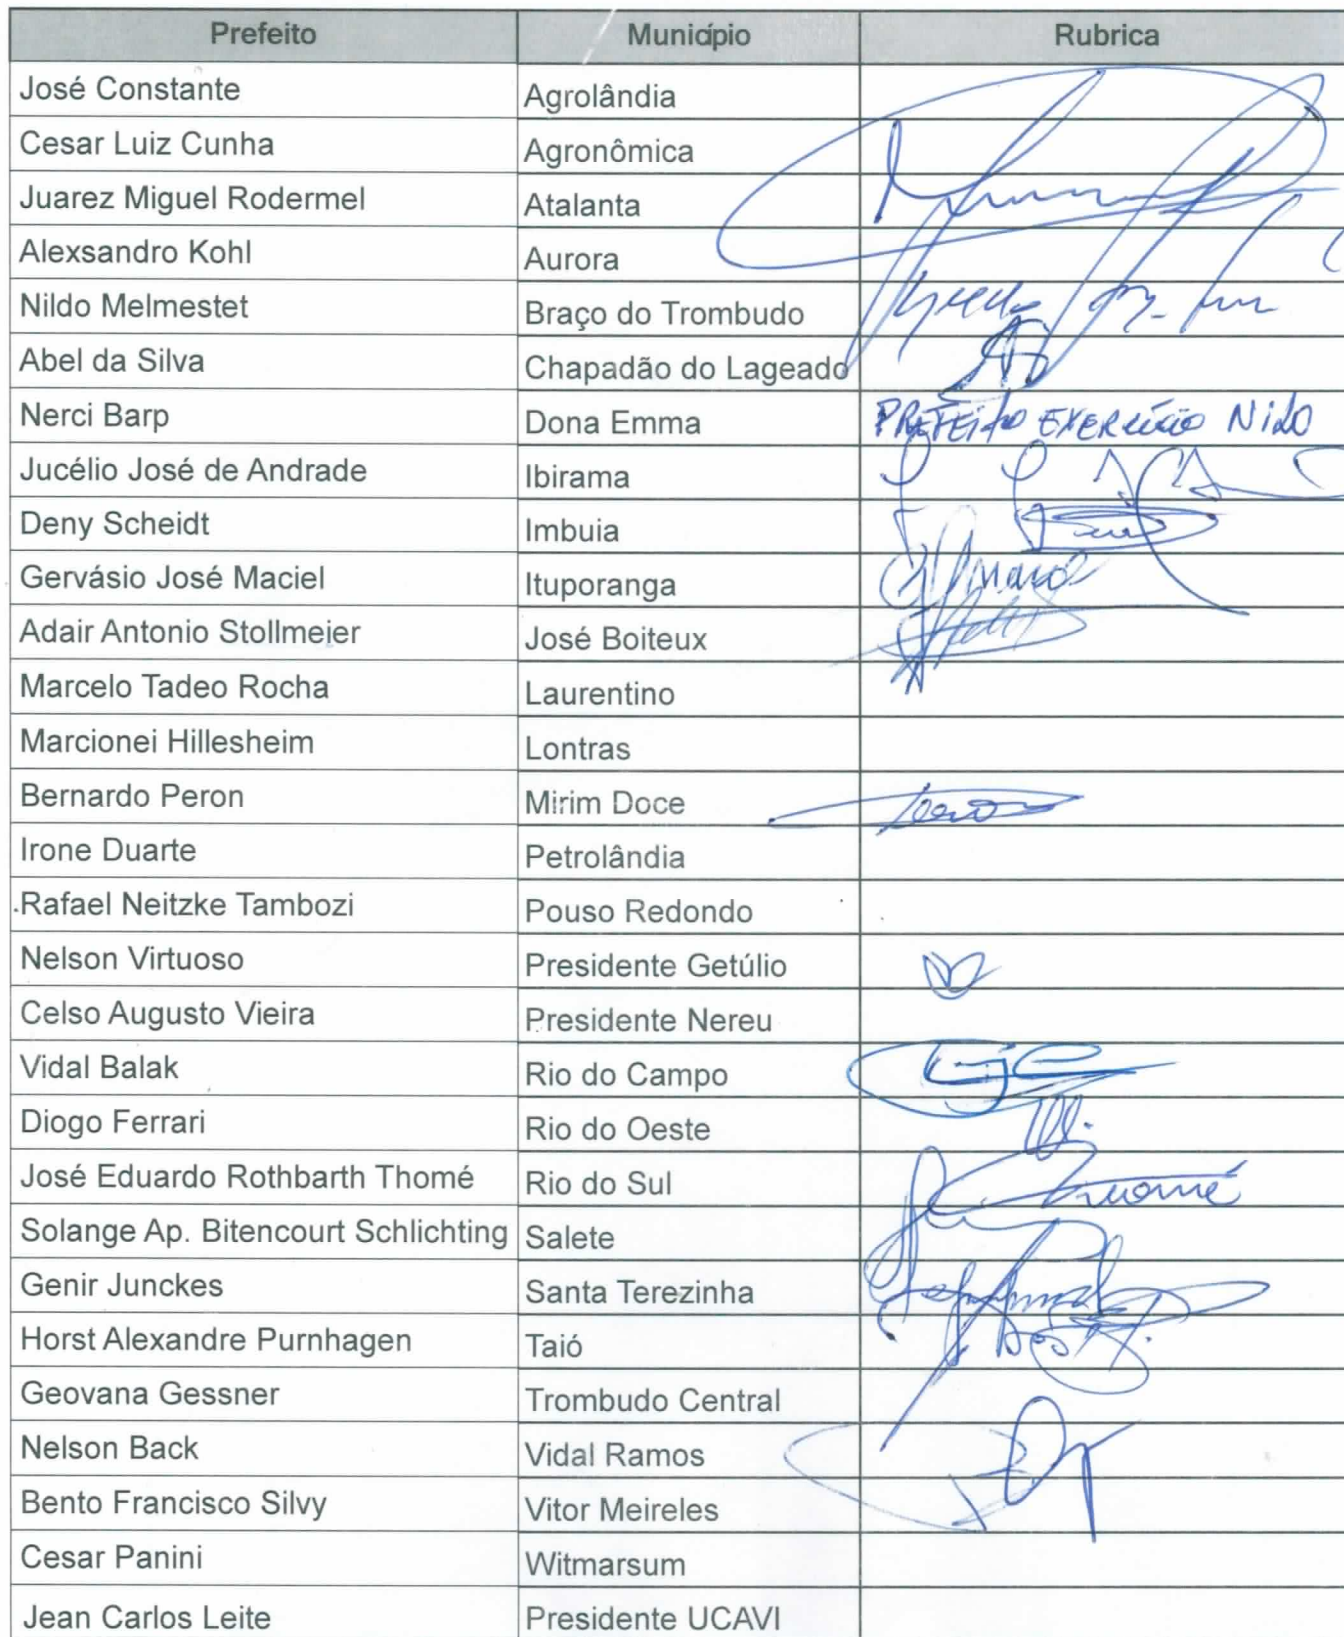 Prefeito Município Rubrica
José Constante Agrolândia
Cesar Luiz Cunha Agronômica
Juarez Miguel Rodermel Atalanta
Alexsandro Kohl Aurora
Nildo Melmestet Braço do Trombudo
Abel da Silva Chapadão do Lageado
Nerci Barp Dona Emma PREFEITO EXERCÍCIO NiLO
Jucélio José de Andrade Ibirama
Deny Scheidt Imbuia
Gervásio José Maciel Ituporanga
Adair Antonio Stollmeier José Boiteux
Marcelo Tadeo Rocha Laurentino
Marcionei Hillesheim Lontras
Bernardo Peron Mirim Doce
Irone Duarte Petrolândia
Rafael Neitzke Tambozi Pouso Redondo
Nelson Virtuoso Presidente Getúlio
Celso Augusto Vieira Presidente Nereu
Vidal Balak Rio do Campo
Diogo Ferrari Rio do Oeste
José Eduardo Rothbarth Thomé Rio do Sul
Solange Ap. Bitencourt Schlichting Salete
Genir Junckes Santa Terezinha
Horst Alexandre Purnhagen Taió
Geovana Gessner Trombudo Central
Nelson Back Vidal Ramos
Bento Francisco Silvy Vitor Meireles
Cesar Panini Witmarsum
Jean Carlos Leite Presidente UCAVI